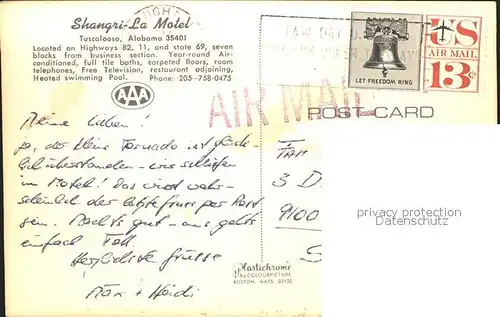 Shangri-La Motel
Tuscaloosa, Alabama 35401
Located on Highways 82, 11, and state 69, seven
blocks from business section. Year-round Air-
conditioned, full tile baths, carpeted floors, room
telephones, Free Television, restaurant adjoining,
Heated swimming Pool. Phone: 205-758-0475
AAA
LAW DAY U.S.A.
LET FREEDOM RING
US
AIR MAIL
13c
AIR MAIL
POST CARD
Meine Lieben!
Ja, der kleine Tornado ist glück-
lich überstanden - wir schliefen
im Motel! Das wird wahr-
scheinlich der letzte Gruss per Post
sein. Machts gut - uns gehts
einfach toll
Herzlichste Grüsse
Max + Heidi
Fam
3 D
9100
S
Plastichrome
by COLOURPICTURE
BOSTON, MASS 02130
privacy protection
Datenschutz